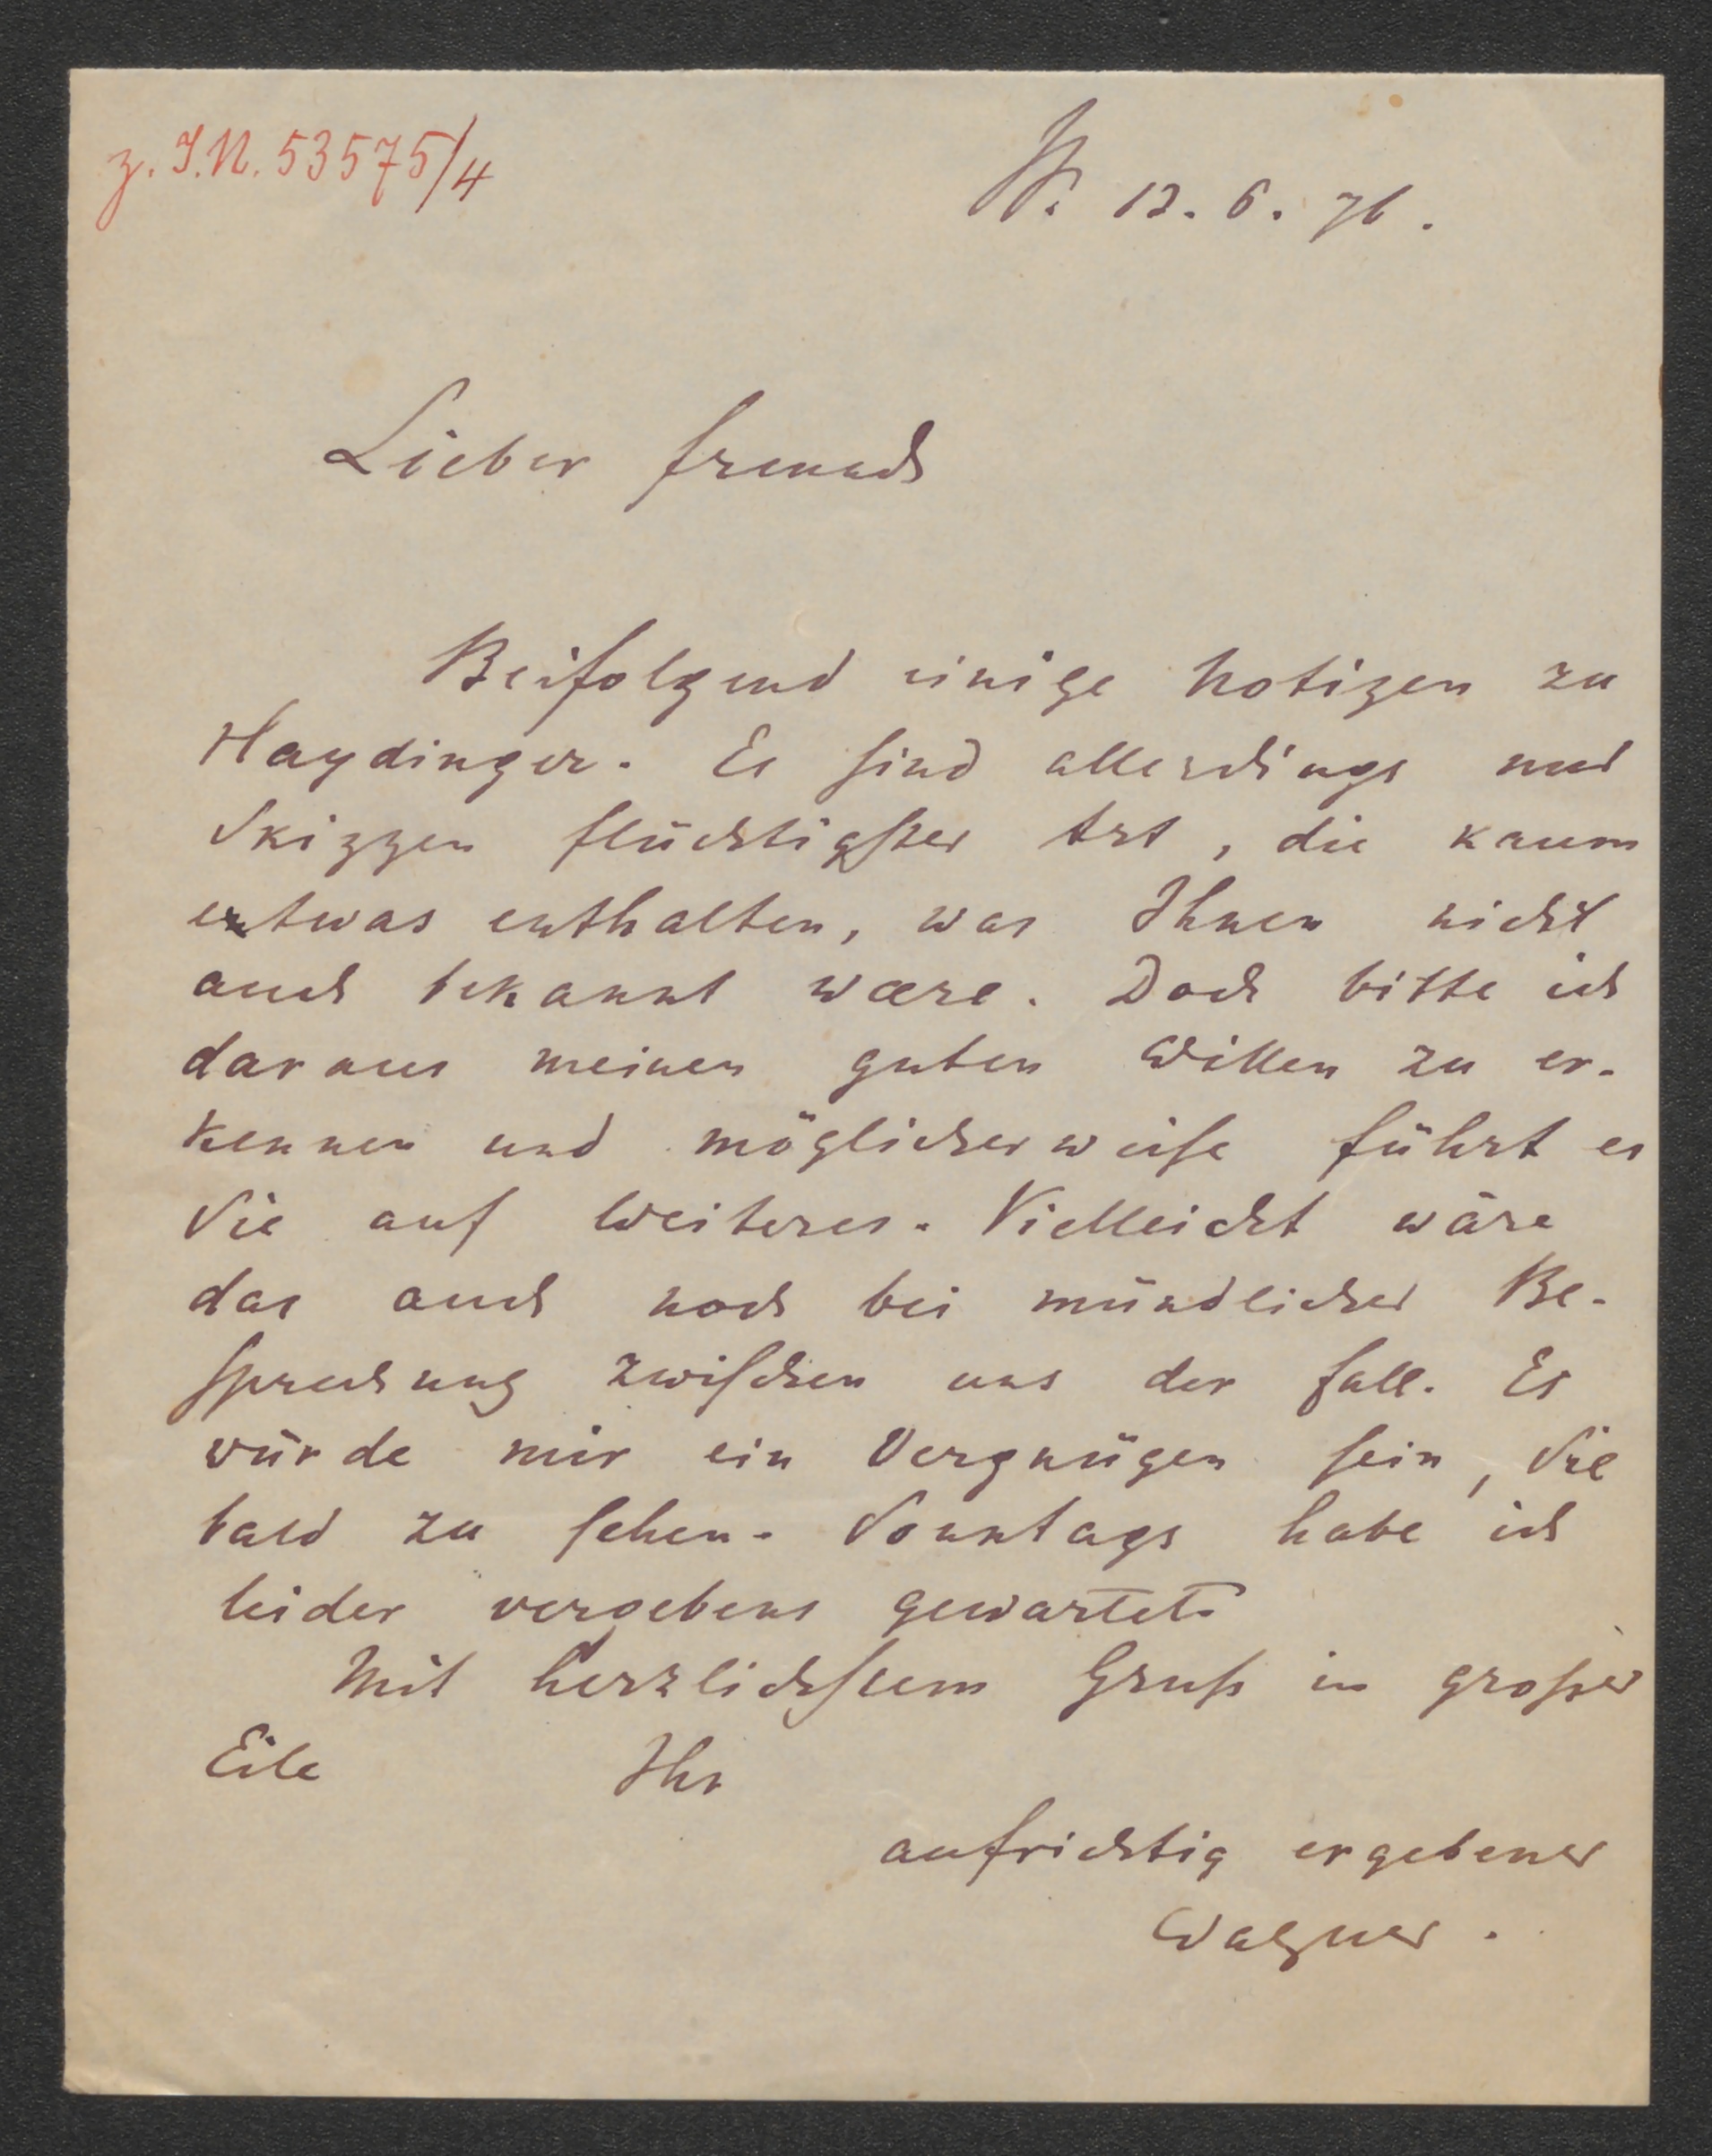 z. I.N. 53575/4
W. 12. 6. 76.
Lieber Freund
Beifolgend einige Notizen zu
Haydinger. Es sind allerdings nur
Skizzen flüchtigster Art, die kaum
etwas enthalten, was Ihnen nicht
auch bekannt wære. Doch bitte ich
daraus meinen guten Willen zu er-
kennen und möglicherweise führt es
Sie auf Weiteres. Vielleicht wäre
das auch noch bei mündlicher Be-
sprechung zwischen uns der Fall. Es
würde mir ein Vergnügen sein, Sie
bald zu sehen. Sonntags habe ich
leider vergebens gewartet.
Mit herzlichstem Gruß in großer
Eile Ihr
aufrichtig ergebener
Wagner.